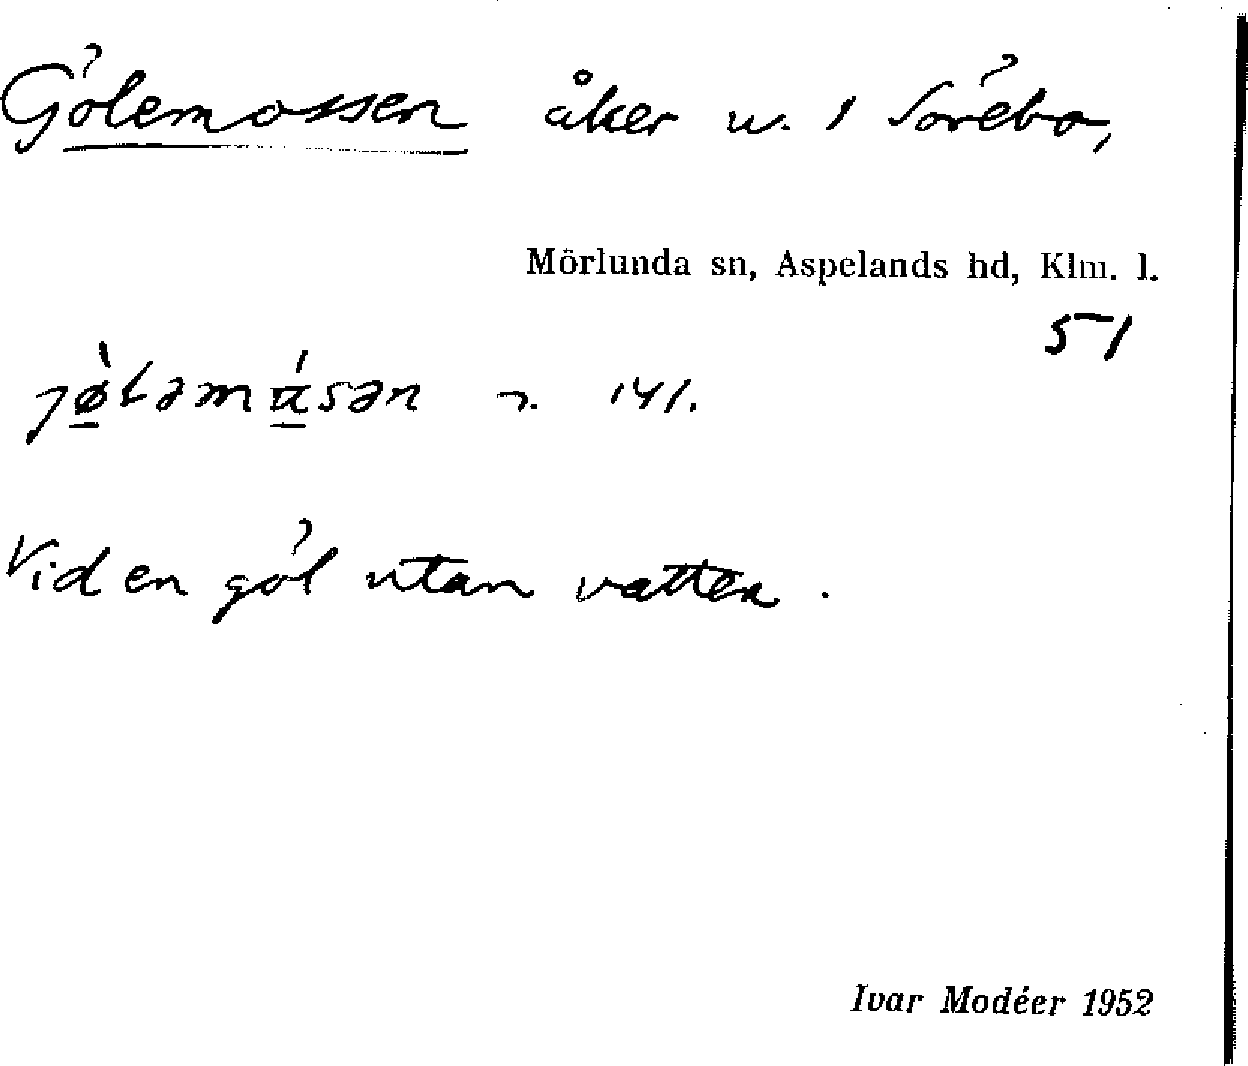 Gölemossen åker u. 1 Sörebo,
Mörlunda sn, Aspelands hd, Klm. l.
51
141.
Vid en göl utan vatten.
Ivar Modéer 1952